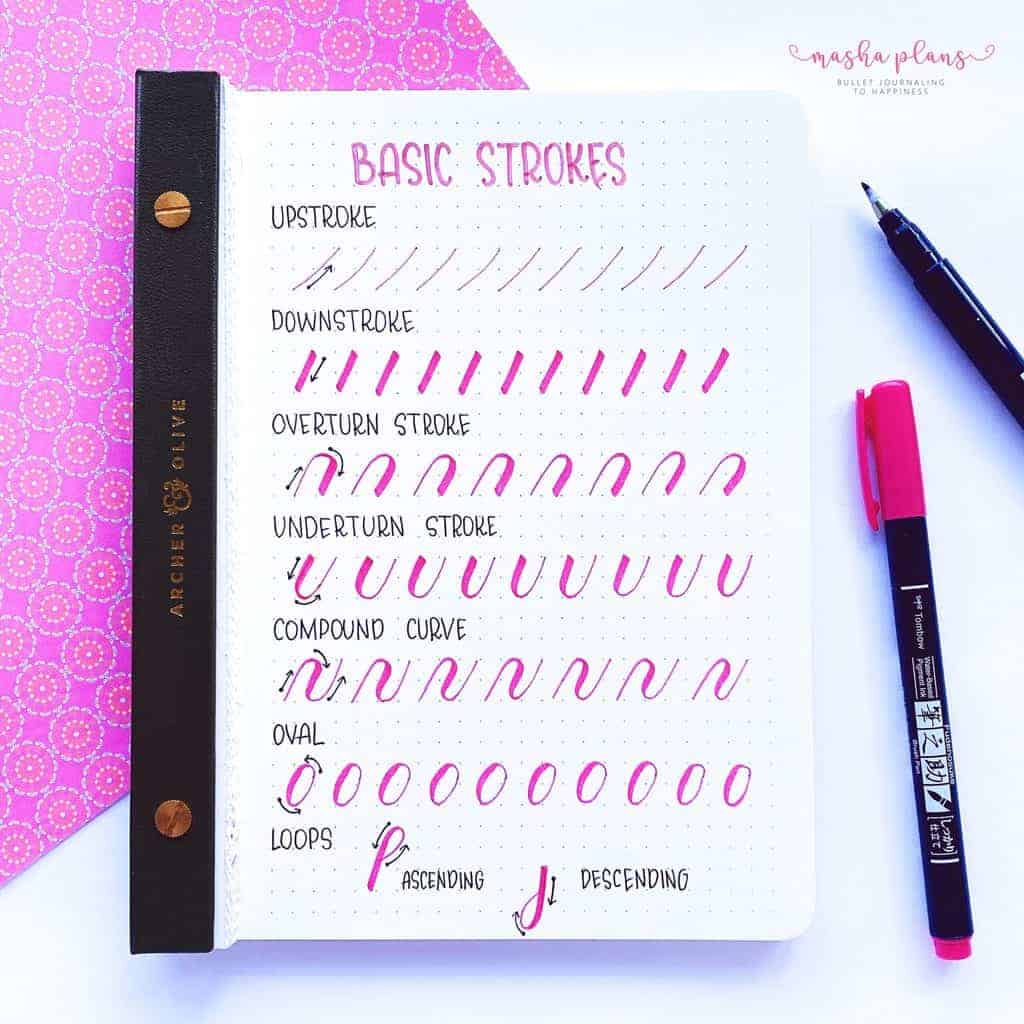 masha plans
BULLET JOURNALING
TO HAPPINESS
BASIC STROKES
UPSTROKE
DOWNSTROKE
OVERTURN STROKE
UNDERTURN STROKE
COMPOUND CURVE
OVAL
LOOPS
ASCENDING
DESCENDING
ARCHER & OLIVE
Tombow
Water-Based
Pigment Ink
筆之助
Fudenosuke
Brush Pen
しっかり
仕立て